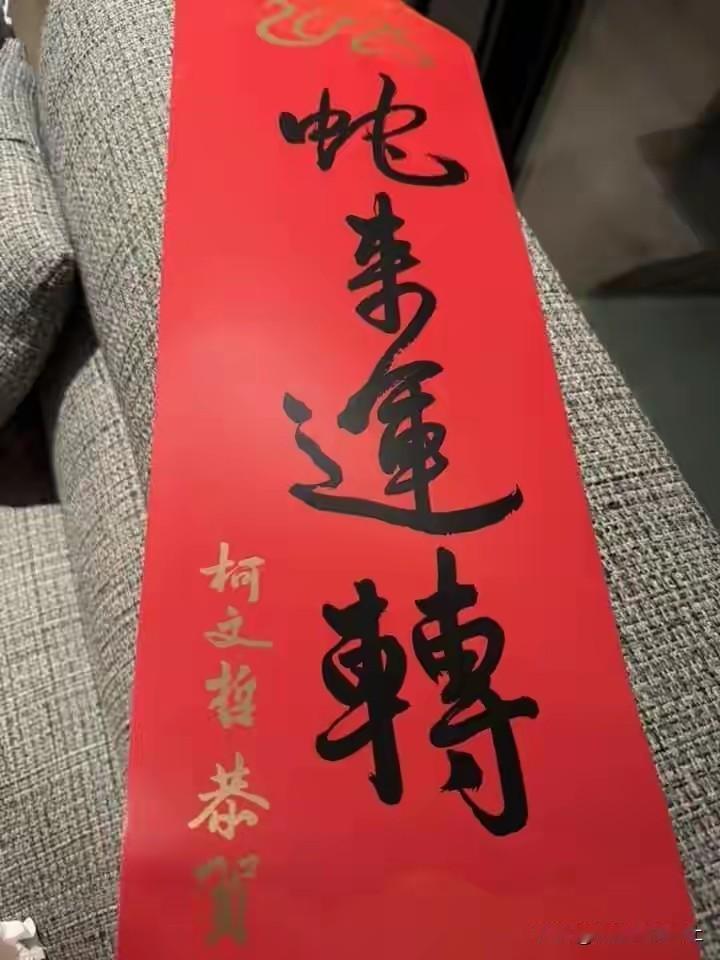 蛇來運轉
柯文哲 恭賀